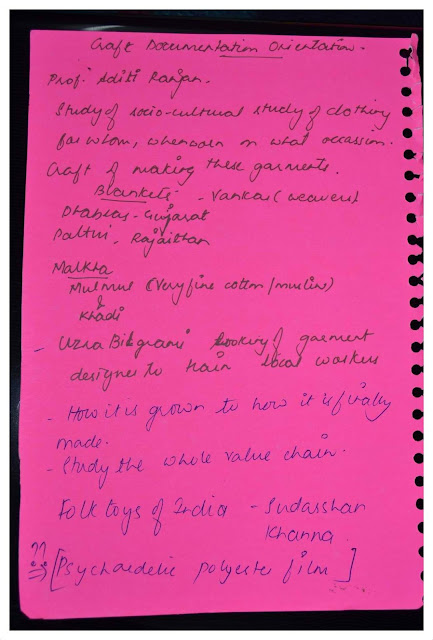 Craft Documentation Orientation.
Prof. Aditi Ranjan.
Study of socio-cultural study of clothing
for whom, when worn on what occassion.
Craft of making these garments.
Blankets - Vankar (weavers)
Dhablas - Gujarat
Rajasthan
Malkha
Mulmul (Very fine cotton/muslin)
&
Khadi
- Uzra Bilgrami looking of garment
designer to train local workers
- How it is grown to how it is finally
made.
- Study the whole value chain.
Folk toys of India - Sudarshan
Khanna
?? [Psychaedelic polyester film]